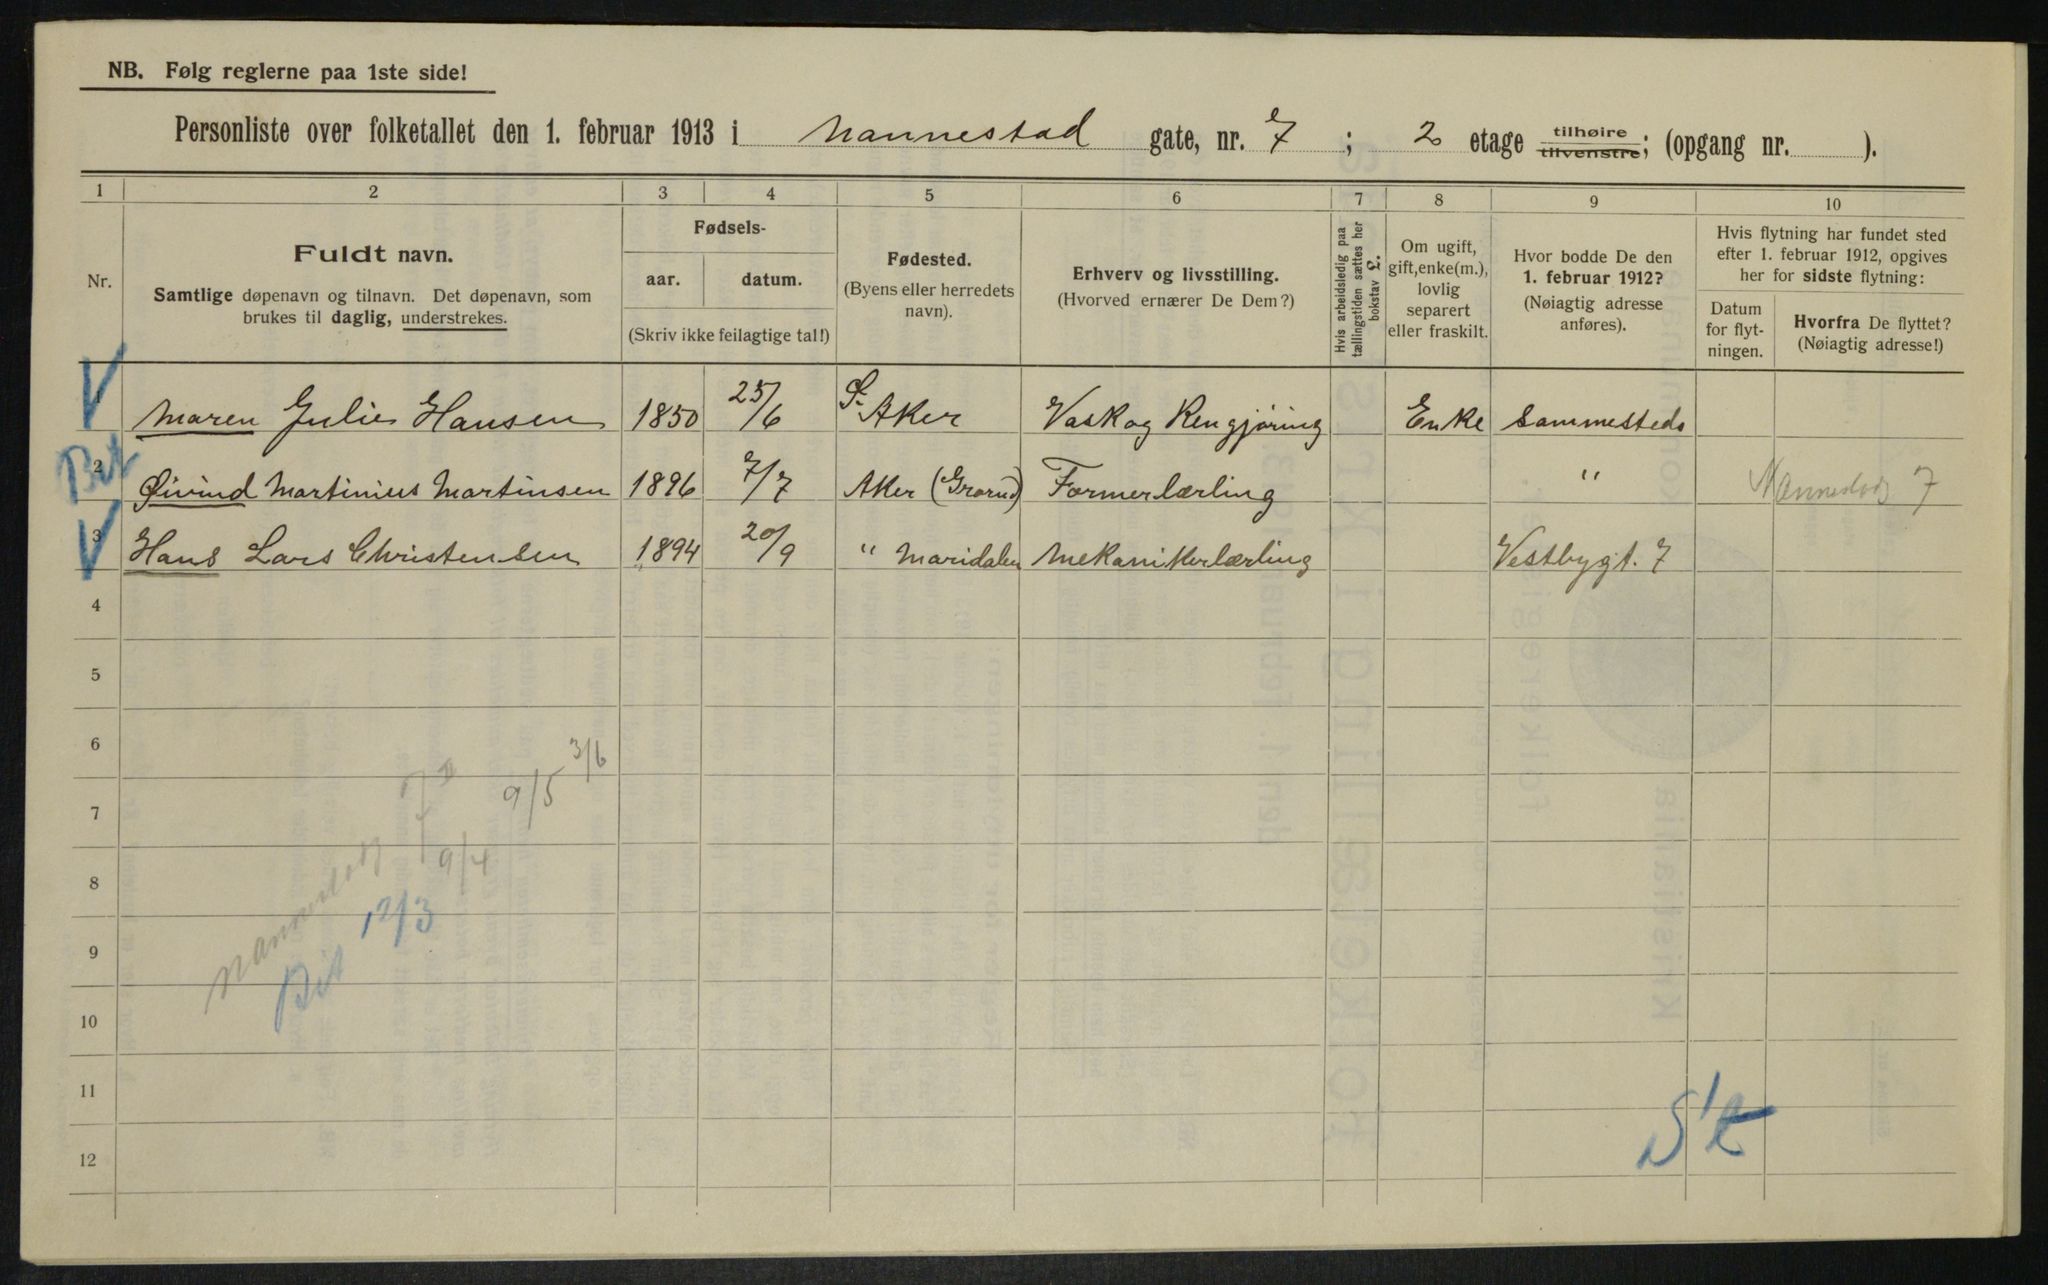 NB. Følg reglerne paa 1ste side!
Personliste over folketallet den 1. februar 1913 i Nannestad gate, nr. 7 ; 2 etage tilhøire tilvenstre; (opgang nr. ).
1 2 3 4 5 6 7 8 9 10
Nr.
Fuldt navn.
Samtlige døpenavn og tilnavn. Det døpenavn, som
brukes til daglig, understrekes.
Fødsels-
aar. datum.
(Skriv ikke feilagtige tal!)
Fødested.
(Byens eller herredets
navn).
Erhverv og livsstilling.
(Hvorved ernærer De Dem?)
Hvis arbeidsledig paa
tællingstiden sættes her
bokstav L.
Om ugift,
gift, enke(m.),
lovlig
separert
eller fraskilt.
Hvor bodde De den
1. februar 1912?
(Nøiagtig adresse
anføres).
Hvis flytning har fundet sted
efter 1. februar 1912, opgives
her for sidste flytning:
Datum
for flyt-
ningen.
Hvorfra De flyttet?
(Nøiagtig adresse!)
1 Maren Julie Hansen 1850 25/6 Aker Vask og Rengjøring Enke Sammesteds
2 Øivind Martinius Martinsen 1896 7/7 Aker (Grorud) Formerlærling " Nannestadg 7
3 Hans Lars Christensen 1894 20/9 " Maridalen Mekanikerlærling Vestbygt. 7
4
5
6
3/6
7
9/5
8
Nannestadg 7 II
9/4
12/3
9
10
11
12